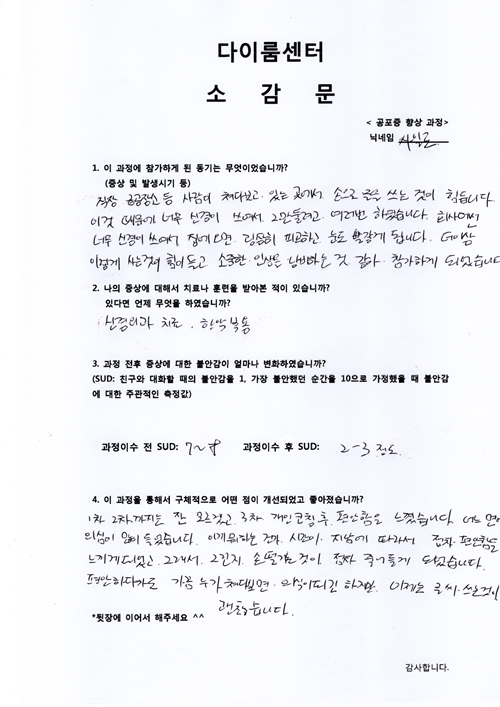 다이룸센터
소 감 문
< 공포증 향상 과정>
닉네임
1. 이 과정에 참가하게 된 동기는 무엇이었습니까?
(증상 및 발생시기 등)
직장 공공장소 등 사람이 쳐다보고 있는 곳에서 손으로 글을 쓰는 것이 힘듭니다.
이것 때문에 너무 신경이 쓰여서 그만둘려고 여러번 하였습니다. 회사에서
너무 신경이 쓰여서 집에오면 굉장히 피곤하고 눈도 빨갛게 됩니다. 더이상
이렇게 사는것이 힘이들고 소중한 인생을 낭비하는 것 같아 참가하게 되었습니다
2. 나의 증상에 대해서 치료나 훈련을 받아본 적이 있습니까?
있다면 언제 무엇을 하였습니까?
신경외과 치료, 한약복용
3. 과정 전후 증상에 대한 불안감이 얼마나 변화하였습니까?
(SUD: 친구와 대화할 때의 불안감을 1, 가장 불안했던 순간을 10으로 가정했을 때 불안감
에 대한 주관적인 측정값)
과정이수 전 SUD: 7~8 과정이수 후 SUD: 2-3 정도
4. 이 과정을 통해서 구체적으로 어떤 점이 개선되었고 좋아졌습니까?
1차 2차까지는 잘 모르겠고, 3차 개인코칭후 편안함을 느꼈습니다.
의심이 많이 들었습니다. 시간이 지남에 따라서 점차 편안함을
느끼게되었고, 그래서 그런지 손떨리는것이 점차 줄어들게 되었습니다.
편안하다가도 가끔 누가 쳐다보면 의식이되긴 하지만 이제는 글씨 쓰는것이
괜찮습니다.
*뒷장에 이어서 해주세요 ^^
감사합니다.